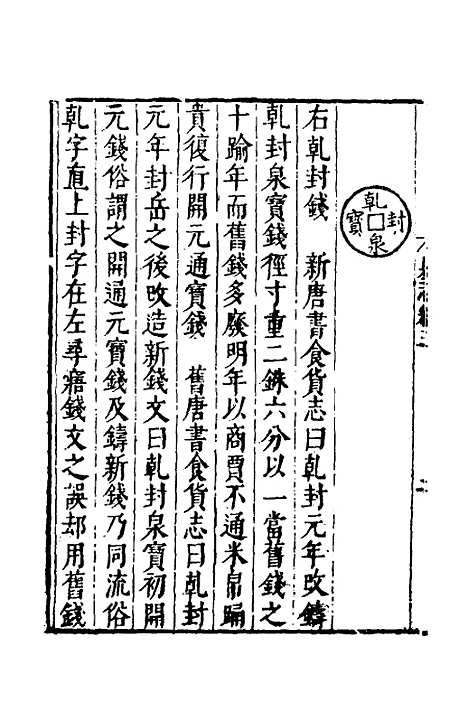 乹封泉寶
右乹封錢　新唐書食貨志曰乹封元年改鑄
乹封泉寶錢徑寸重二銖六分以一當舊錢之
十踰年而舊錢多廢明年以商賈不通米帛踊
貴復行開元通寶錢　舊唐書食貨志曰乹封
元年封岳之後改造新錢文曰乹封泉寶初開
元錢俗謂之開通元寶錢及鑄新錢乃同流俗
乹字直上封字在左尋寤錢文之誤却用舊錢